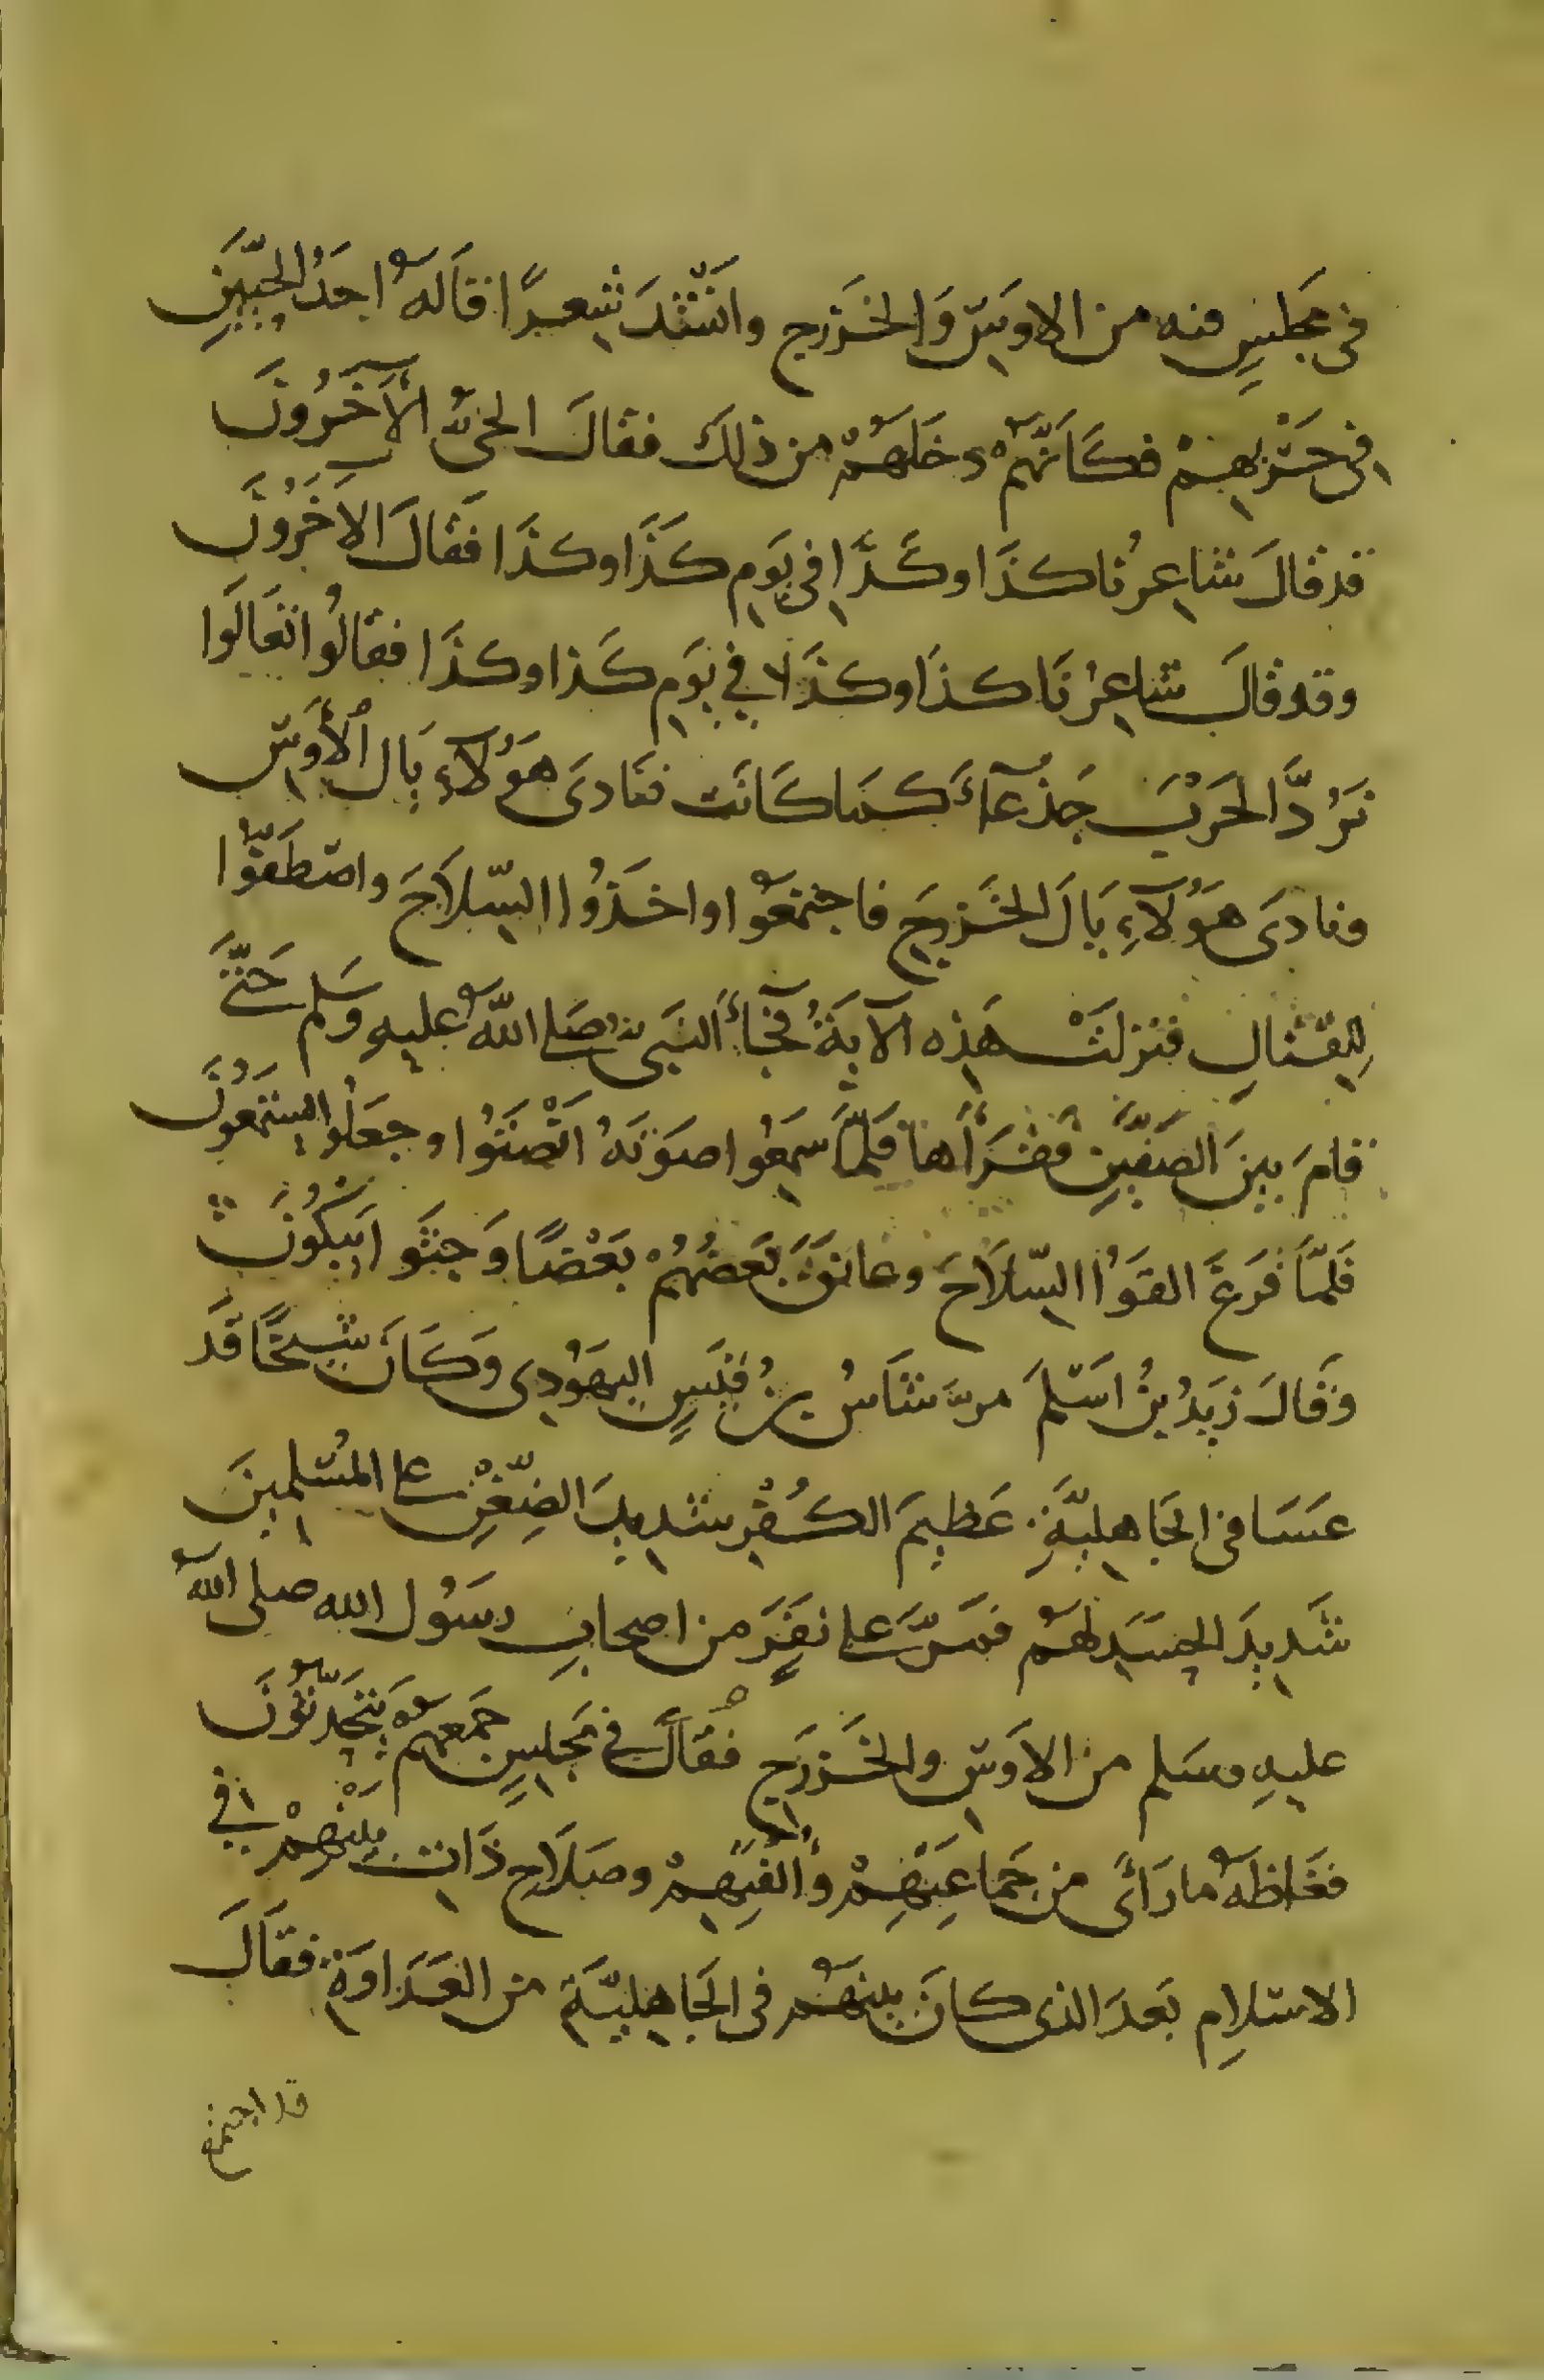 في مجلس فيه من الاوس وَالخَزرج وانشَدَ شِعرًا قَالهُ احَدُ الحيَّيْنِ
في حَرْبهِمْ فكَاَنَّهُمْ دخَلَهُمْ من ذلكَ فقالَ الحىُّ الآخَرُونَ
قد قالَ شاعِرُنا كذَا وكَذَا في يَومِ كَذَا وكذَا فَقَالَ الآخَرُونَ
وقد قالَ شاعِرُنَا كذَا وكذَا في يَومِ كَذا وكذَا فقالُوا تعَالَوا
نَرُدَّ الحَرْبَ جَذعَاءَ كمَا كَانَت فنَادَى هَؤُلآءِ يَال الأَوسِ
ونادَى هؤُلآءِ يَالَ الخَزرجِ فاجتمعُوا واخَذُوا السِّلاَحَ واصْطَفُّوا
لِلقتَالِ فنزلَتْ هَذِه الآيَةُ فجَاءَ النَبىُّ صَلى اللهُ عليهِ وَسَلم حَتَّى
قامَ بينَ الصَفَّينِ فقَرَأَها فَلَمَّا سمِعُوا صَوتَهُ انْصَتُوا وجعَلُوا يستَمعُونَ
فَلمَّا فرَغَ القَوا السِّلاَحَ وعانَقَ بَعضُهُمْ بَعْضًا وَجَثَوا يَبكُونَ
وَقَالَ زيدُ بنُ اسْلمَ مرَّ شَاسُ بنُ قَيسٍ اليهُودِى وَكَانَ شيخًا قَد
عسَا في الجَاهِليَّةِ عَظيمَ الكُفْرِ شديدَ الضِّغْنِ على المُسْلمِينَ
شَديدَ الحسَدِ لهُم فمَرَّ على نفَرٍ من اصحابِ رسُول الله صلى اللهُ
عليهِ وسَلم من الاَوسِ والخَزرَجِ فُقَالَ في مَجلِسٍ جَمعهُمْ يَتَحَدَّثُونَ
فغَاظهُ ما رَأَى من جمَاعَتِهِمْ وأُلفَتِهِمْ وصَلاَحِ ذَاتِ بَيْنِهِمْ في
الاسْلامِ بَعدَ الذى كانَ بينهُم في الجَاهليَّةِ من العَدَاوَةِ فقَالَ
قد اجتمع